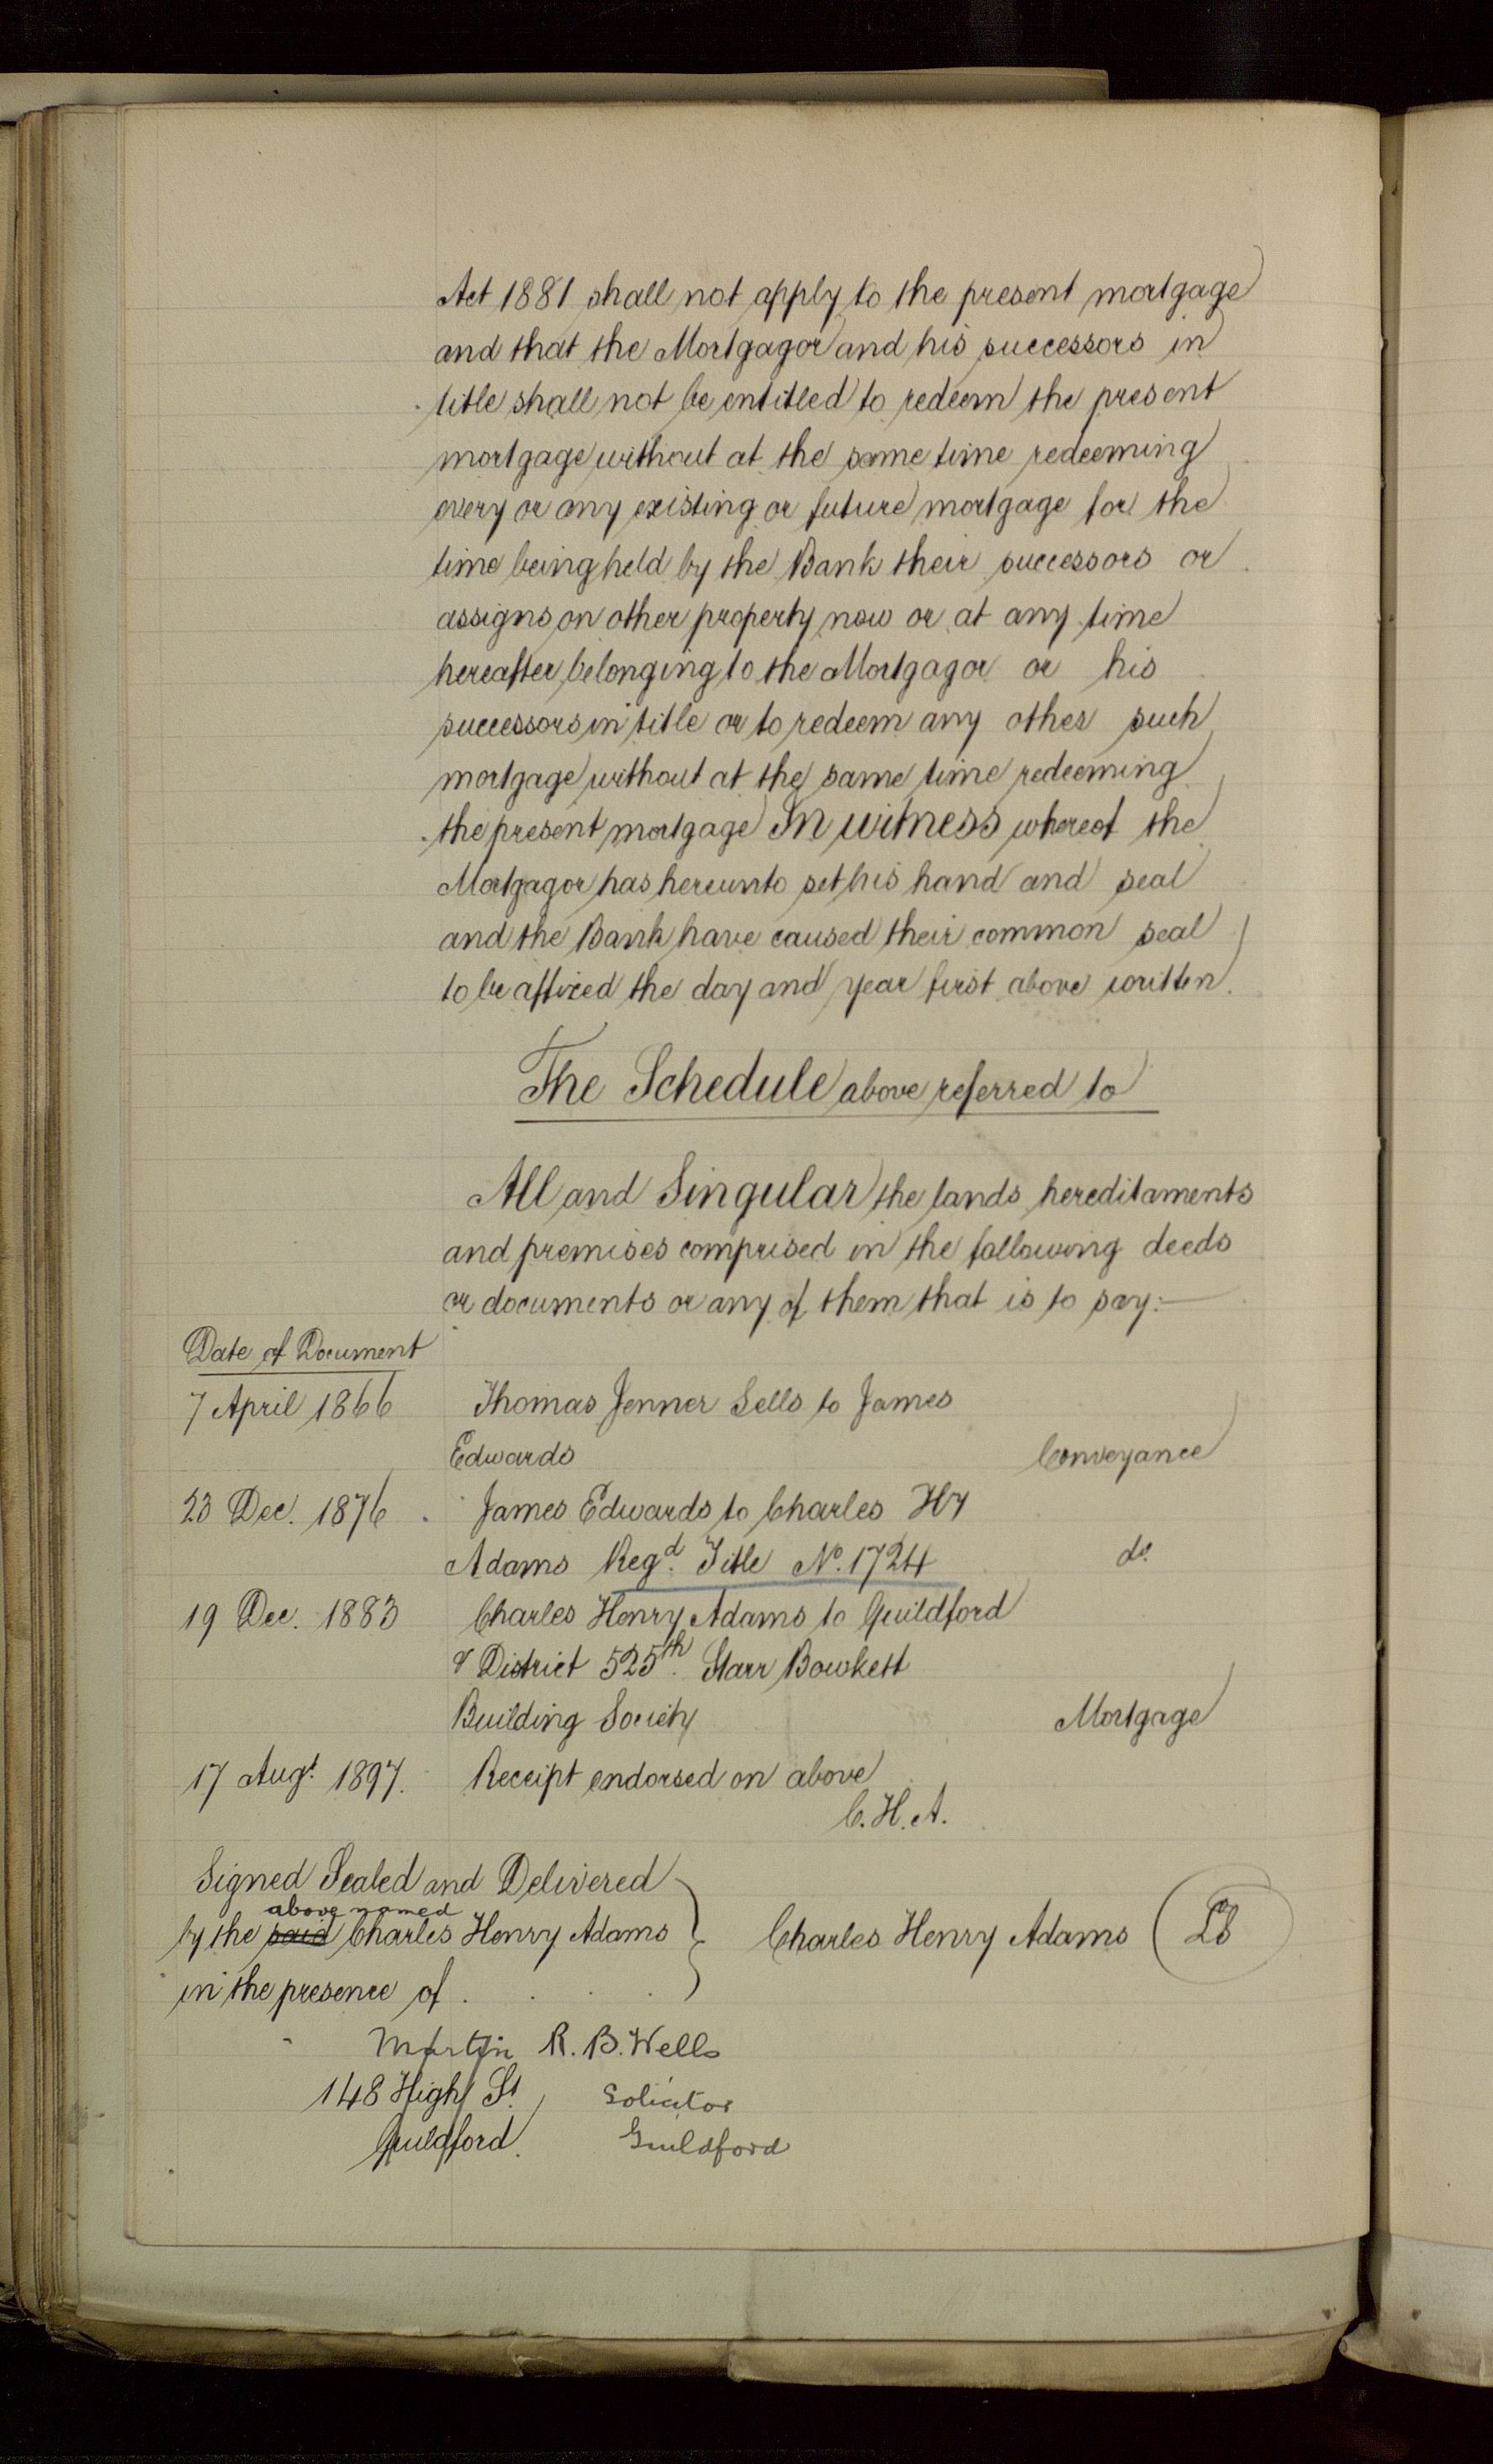 Act 1881 shall not apply to the present mortgage
and that the Mortgagor and his successors in
title shall not be entitled to redeem the present
mortgage without at the same time redeeming
every or any existing or future mortgage for the
time being held by the Bank their successors or
assigns on other property now or at any time
hereafter belonging to the Mortgagor or his
successors in title or to redeem any other such
mortgage without at the same time redeeming
the present mortgage In witness whereof the
Mortgagor has hereunto set his hand and seal
and the Bank have caused their common seal
to be affixed the day and year first above written.
The Schedule above referred to
All and Singular the lands hereditaments
and premises comprised in the following deeds
or documents or any of them that is to say:—
Date of Document
7 April 1866 Thomas Jenner Sells to James
Edwards Conveyance
23 Dec. 1876 James Edwards to Charles Hy
Adams Regd. Title No. 1724 do.
19 Dec. 1883 Charles Henry Adams to Guildford
& District 525th. Starr Bowkett
Building Society Mortgage
17 Augt. 1897. Receipt endorsed on above
C.H.A.
Signed Sealed and Delivered
above named
by the said Charles Henry Adams Charles Henry Adams LS
in the presence of
Martyn R. B. Wells
148 High St, Solicitor
Guildford. Guildford